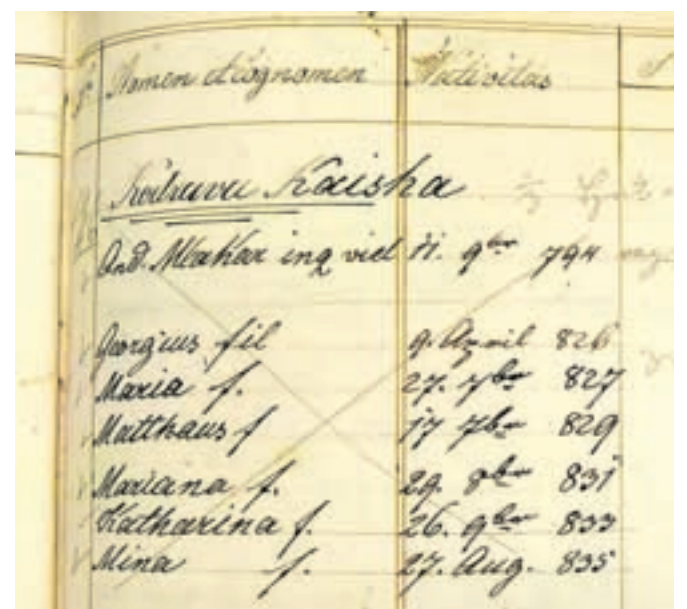 Nomen et cognomen Nativitas
Kaisha
And. Mlakar inq viel 11. 9br 794
Georgius fil 9. April 826
Maria f. 27. 7br 827
Matthaus f 17 7br 829
Mariana f. 29. 8br 831
Katharina f. 26. 9br 833
Mina f. 27. Aug. 835